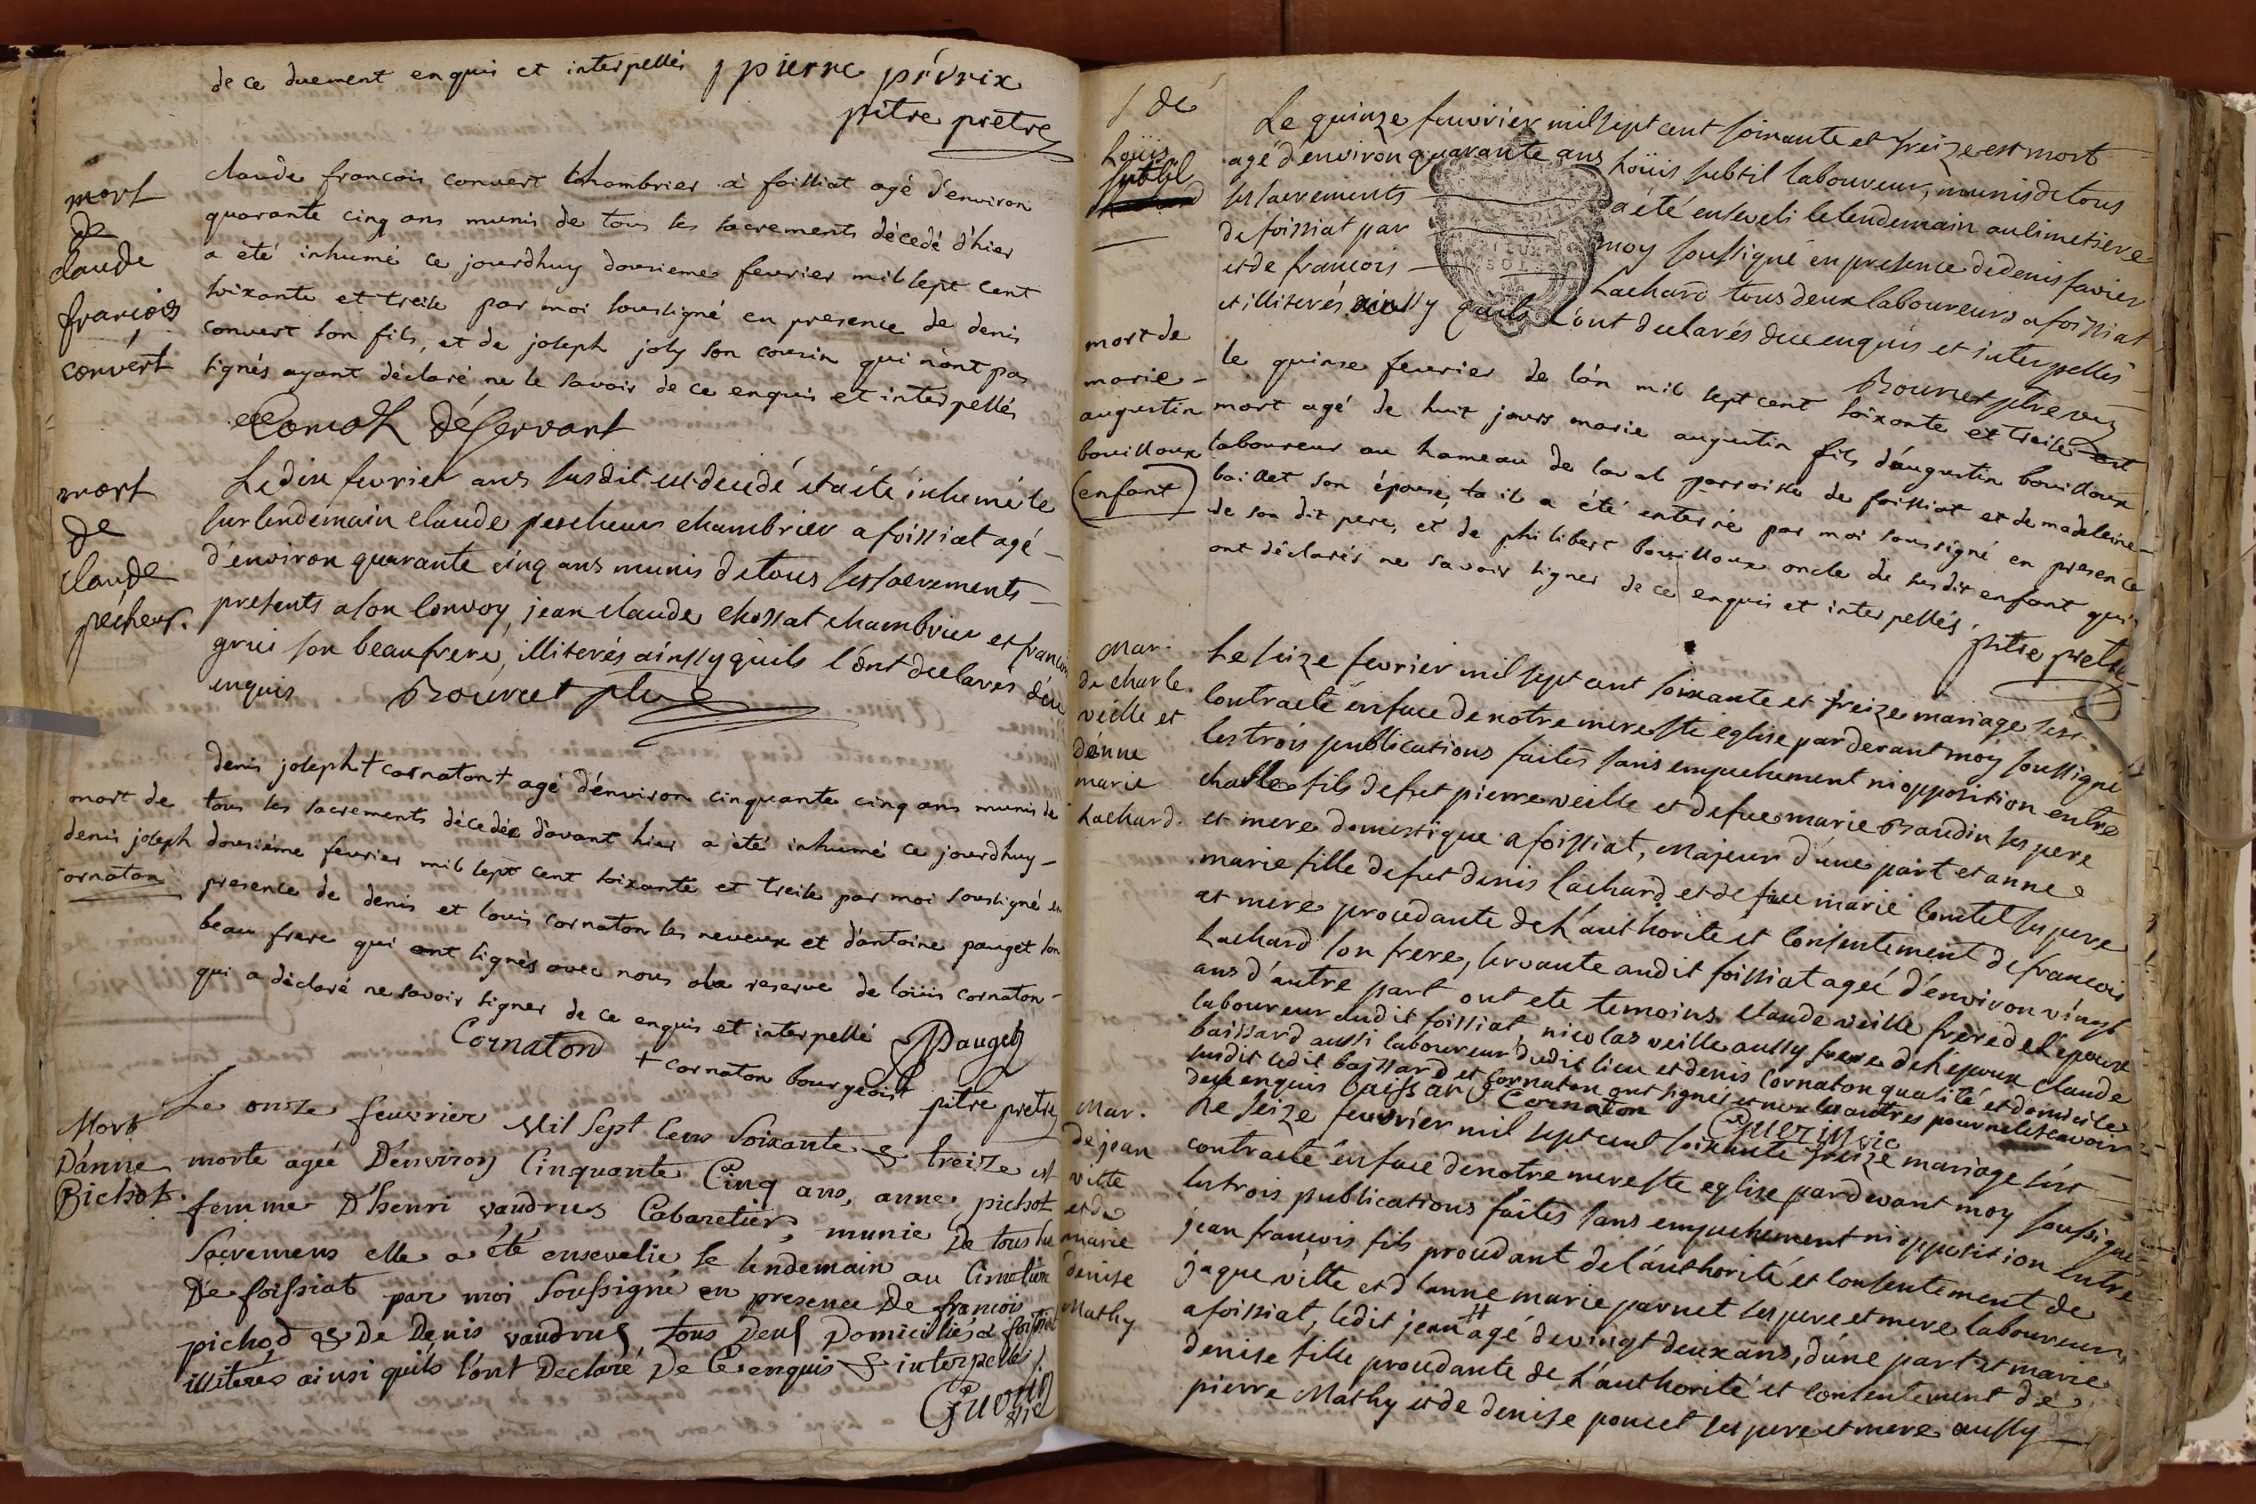 de ce duement enquis et interpellés pierre prévrix
pitre prêtre
mort
de
claude
françois
convert
claude francois convert chambrier à foissiat agé d'environ
quarante cinq ans munis de tous les sacrements décedé d'hier
a été inhumé ce jourdhuy dousieme fevrier mil sept cent
soixante et treise par moi soussigné en presence de denis
convert son fils, et de joseph joly son cousin qui n'ont pas
signés ayant déclaré ne le savoir de ce enquis et interpellés
Cornath désservant
mort
de
claude
pécheur.
Le dix fevrier ans susdit est decedé et a été inhumé le
surlendemain claude pescheur chambrier a foissiat agé
d'environ quarante cinq ans munis de tous les sacrements
presents a son convoy, jean claude chossat chambrier et francois
gruis son beaufrere, illiterés ainssy quils l'ont declarés dece
enquis Bouruet ptre
mort de
denis joseph
cornaton
denis joseph + cornaton + agé d'environ cinquante cinq ans munis de
tous les sacrements décedés d'avant hier a été inhumé ce jourdhuy
dousiéme fevrier mil sept cent soixante et treise par moi soussigné en
presence de denis et louis cornaton ses neveux et d'antoine pauget son
beau frere qui ont signés avec nous a la reserve de loüis cornaton
qui a déclaré ne savoir signer de ce enquis et interpellé
Cornaton Pauget
+ cornaton bourgeois pitre pretre
Mort
D'anne
Pichot.
Le onze feuvrier Mil Sept Cens Soixante & treize est
morte agée D'environ Cinquante Cinq ans, anne pichot
femme D'henri vaudrus Cabaretier, munie De tous les
Sacremens elle a été ensevelie le lendemain au Cimetiere
De foissiat par moi Soussigné en presence De françois
pichod & De Denis vaudrus tous Deus Domiciliés à foissiat
illiterés ainsi quils l'ont Declaré De Ce enquis & interpellés.
Guerin vic
de
Loüis
subtil
Le quinze feuvrier mil sept cent soixante et treize est mort
agé d'environ quarante ans Loüis subtil laboureur, munis de tous
les sacrements a été enseveli le lendemain au cimetiere
de foissiat par moy soussigné en presence de denis favier
et de francois Lachard tous deux laboureurs a foissiat
et illiterés ainssy quils l'ont declarés dece enquis et interpellés
Bouruet ptre vic
mort de
marie
augustin
bouilloux
(enfant)
le quinse fevrier de l'an mil sept cent soixante et treise est
mort agé de huit jours marie augustin fils d'augustin bouilloux
laboureur au hameau de laval parroisse de foissiat et de madeleine
baillet son épouse, ta il a été enterré par moi soussigné en presence
de son dit pere, et de philibert bouilloux oncle de susdit enfant qui
ont déclarés ne savoir signer de ce enquis et interpellés.
pitre pretre
Mar.
de charle
veille et
d'anne
marie
Lachard.
Le seize fevrier mil sept cent soixante et treize mariage s'est
contracté en face de notre mere ste eglise par devant moy soussigné
les trois publications faites sans empechement ni opposition entre
charle fils de fut pierre veille et de fue marie Baudin ses pere
et mere domestique a foissiat, Majeur d'une part et anne
marie fille de fut denis Lachard et de fue marie Comtet ses pere
et mere procedante de l'authorité et consentement de francois
Lachard son frere, servante audit foissiat ageé d'environ vingt
ans d'autre part ont ete temoins claude veille frere de l'epoux
laboureur audit foissiat, nicolas veille aussy frere de l'epoux claude
baissard aussi laboureur dudit lieu et denis Cornaton qualité et domicile
susdit ledit baissard et Cornaton ont signés et non les autres pour ne le scavoir
dece enquis baissard Cornaton Guerin vic
Mar.
de jean
vitte
et de
marie
denise
Mathy
Le seize feuvrier mil sept cent soixante treize mariage s'est
contracté en face de notre mere ste eglise pardevant moy soussigné
les trois publications faites sans empechement ni opposition entre
jean francois fils procedant de l'authorité et consentement de
jaque vitte et d'anne marie parnet ses pere et mere laboureurs
a foissiat, ledit jean # agé de vingt deux ans, d'une part et marie
denise fille procedante de l'authorité et consentement de
pierre Mathy et de denise poncet ses pere et mere aussy